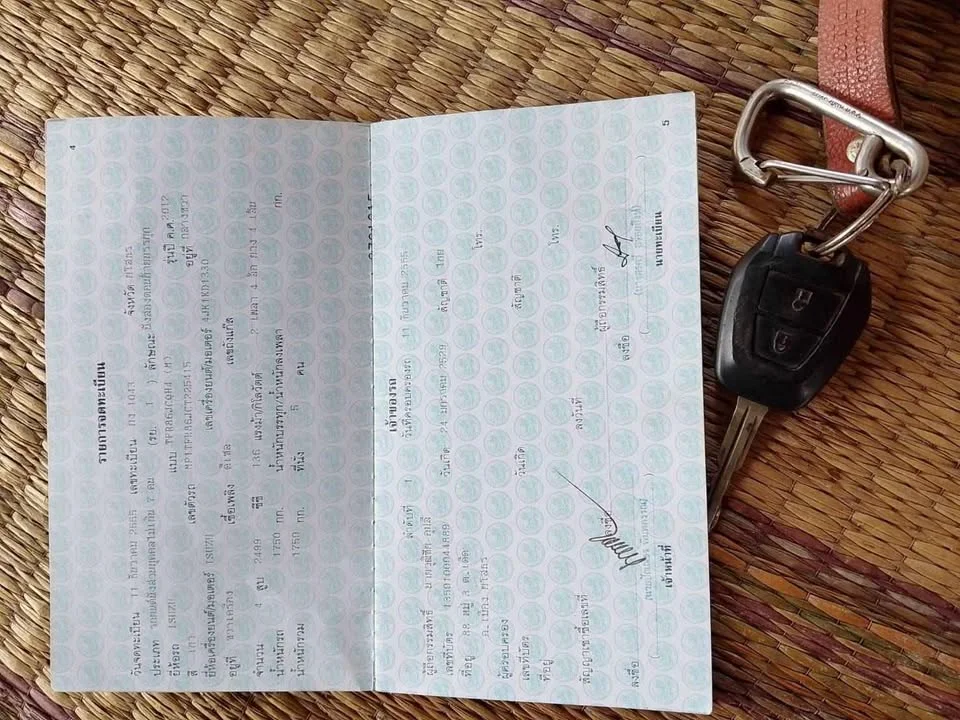 4
รายการจดทะเบียน
วันจดทะเบียน 11 ธันวาคม 2555 เลขทะเบียน กง 1013 จังหวัด ยโสธร
ประเภท รถยนต์นั่งส่วนบุคคลไม่เกิน 7 คน (รย. 1 ) ลักษณะ นั่งสองตอนท้ายบรรทุก
ยี่ห้อรถ ISUZU แบบ รุ่นปี ค.ศ.2012
สี เทา เลขตัวรถ อยู่ที่ กลางขวา
ยี่ห้อเครื่องยนต์/มอเตอร์ ISUZU เลขเครื่องยนต์/มอเตอร์
อยู่ที่ ขวาเครื่อง เชื้อเพลิง ดีเซล เลขถังแก๊ส
จำนวน 4 สูบ 2499 ซีซี 136 แรงม้า/กิโลวัตต์ 2 เพลา 4 ล้อ ยาง 4 เส้น
น้ำหนักรถ 1750 กก. น้ำหนักบรรทุก/น้ำหนักลงเพลา กก.
น้ำหนักรวม 1750 กก. ที่นั่ง 5 คน
5
เจ้าของรถ
ลำดับที่ 1 วันที่ครอบครองรถ 11 ธันวาคม 2555
ผู้ถือกรรมสิทธิ์
เลขที่บัตร วันเกิด 24 มกราคม 2529 สัญชาติ ไทย
ที่อยู่ 88 หมู่ โทร.
ยโสธร
ผู้ครอบครอง
เลขที่บัตร วันเกิด สัญชาติ
ที่อยู่ โทร.
สัญญาเช่าซื้อเลขที่ ลงวันที่ ผู้ถือกรรมสิทธิ์
ลงชื่อ ลงชื่อ ลงชื่อ
เจ้าหน้าที่ นายทะเบียน